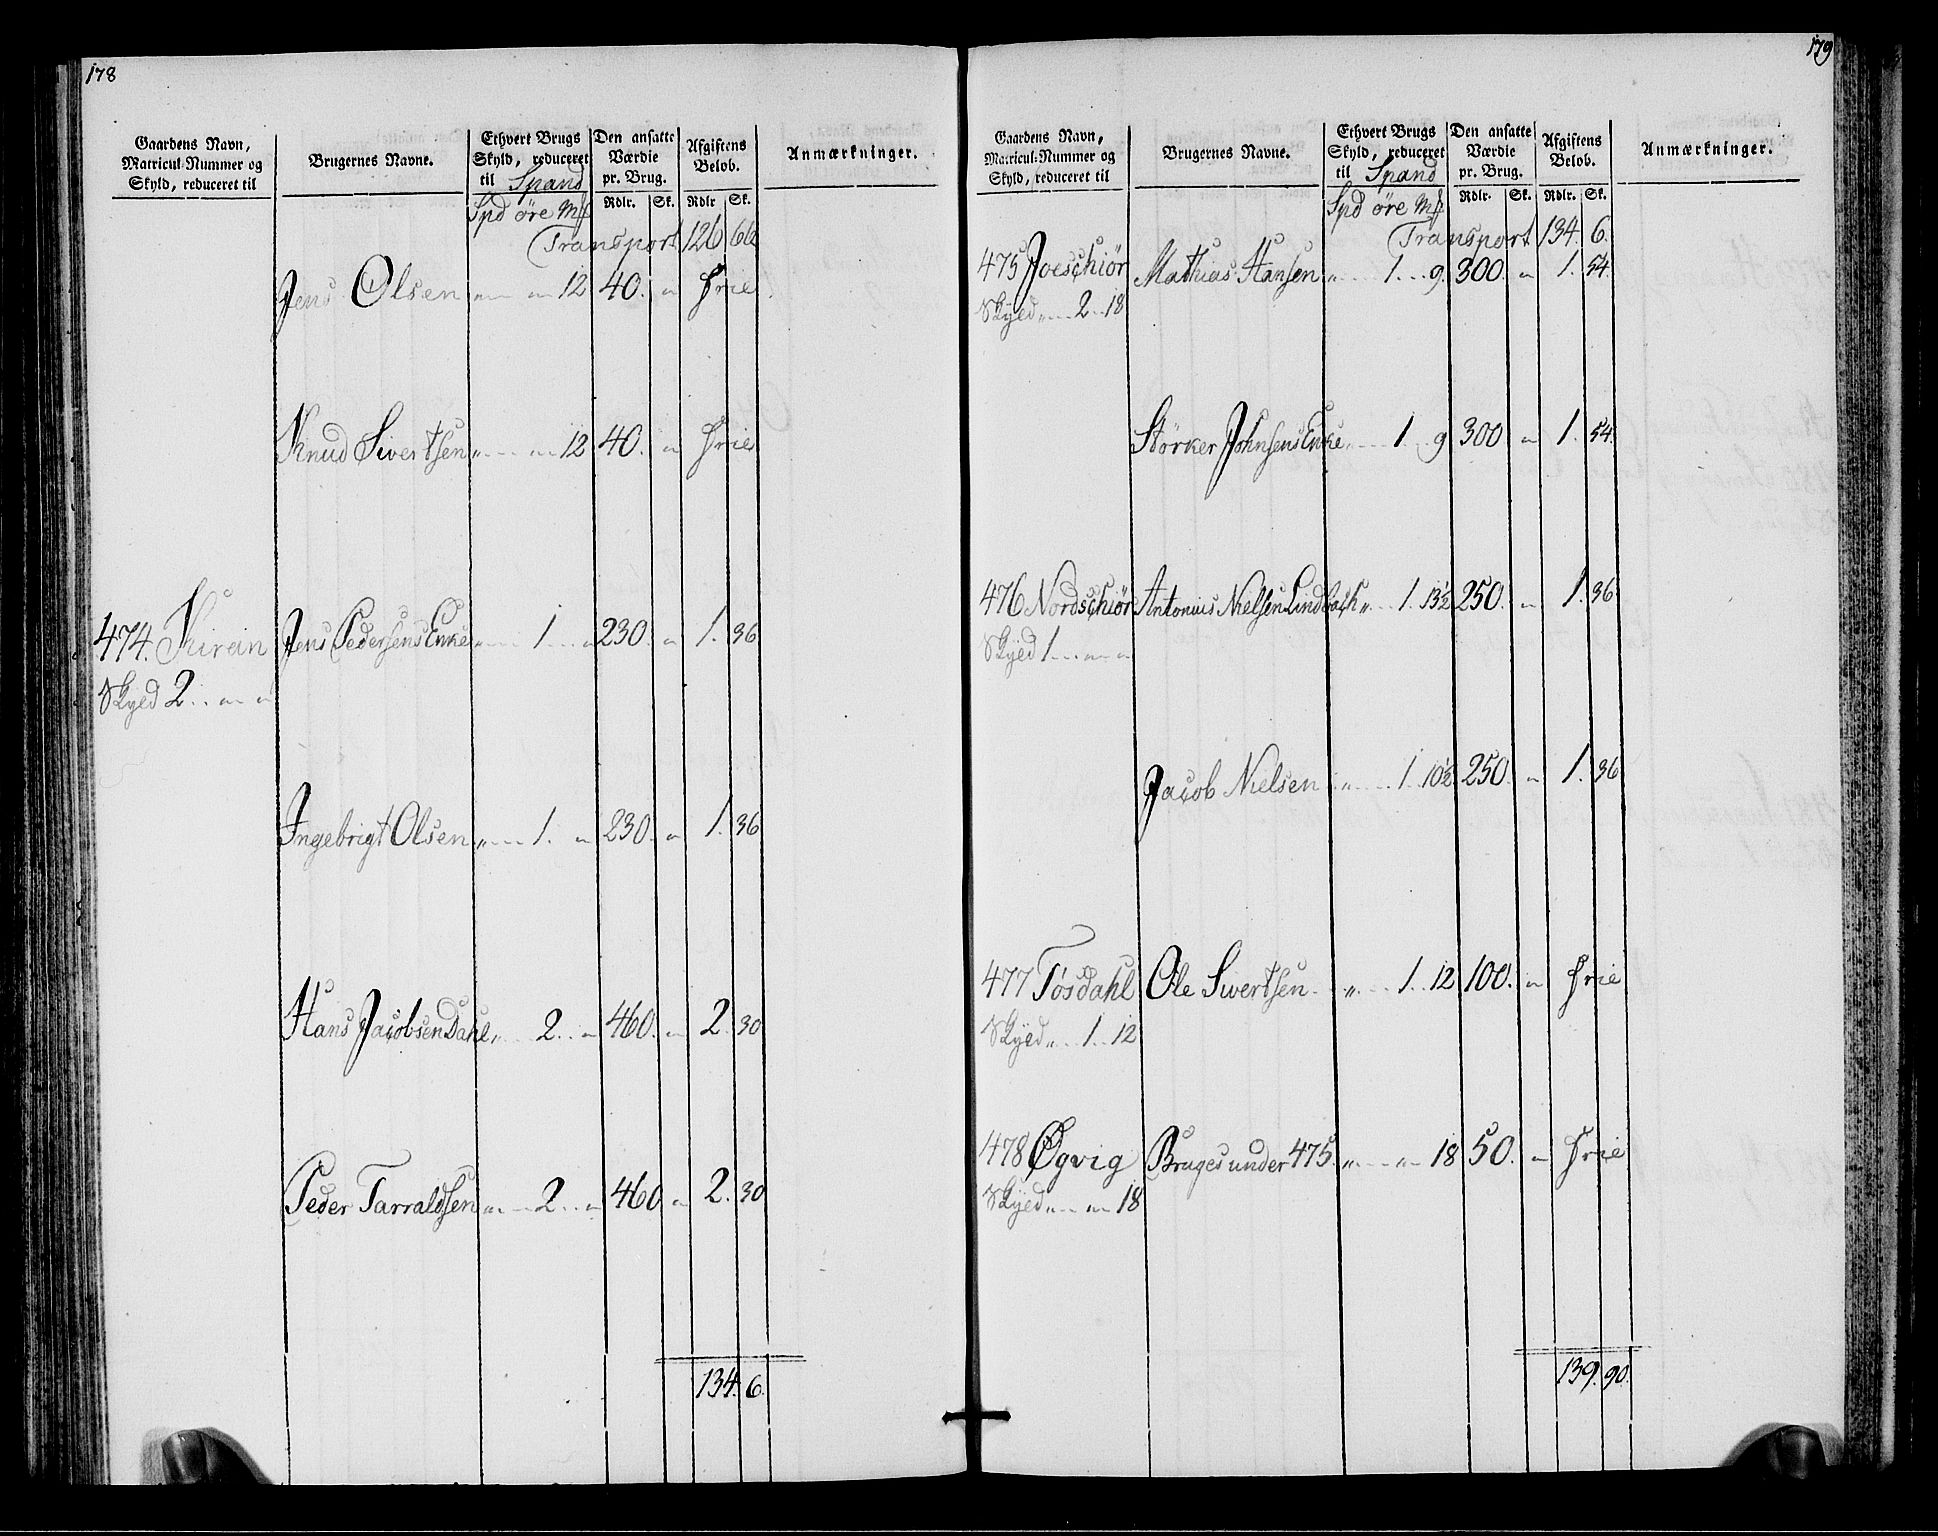 178
Gaardens Navn,
Matricul-Nummer og
Skyld, reduceret til
Brugernes Navne.
Ethvert Brugs
Skyld, reduceret
til Spand
Den ansatte
Værdie
pr. Brug.
Afgiftens
Beløb.
Anmærkninger.
Spd öre Mf
Rdlr. Sk. Rdlr Sk.
Transport 126 66
Jens Olsen " " 12 40. " frie
Knud Sivertsen " " 12 40. " frie
474. Kiran Jens Pedersens Enke " 1 " 230. " 1. 36
Skyld 2 " "
Ingebrigt Olsen " 1. " 230. " 1. 36
Hans Jacobsen Dahl " 2. " 460. " 2. 30
Peder Tarraldsen " 2. " 460 " 2. 30
134. 6.
179
Gaardens Navn,
Matricul-Nummer og
Skyld, reduceret til
Brugernes Navne.
Ethvert Brugs
Skyld, reduceret
til Spand
Den ansatte
Værdie
pr. Brug.
Afgiftens
Beløb.
Anmærkninger.
Spd öre Mf
Rdlr. Sk. Rdlr. Sk.
Transport 134. 6.
475 Joeschiör Mathias Hansen " 1. 9. 300. " 1. 54.
Skyld " 2 18
Störker Johnsens Enke " 1 9 300 " 1. 54.
476 Nordschiör Antonius Nielsen Lindbach " 1. 13½ 250. " 1. 36
Skyld 1 " "
Jacob Nielsen " 1. 10½ 250. " 1. 36
477 Tösdahl Ole Sivertsen " 1 12 100. " frie
Skyld " 1 12
478 Øgvig Bruges under 475. " " 18 50. " frie
Skyld " " 18
139. 90.